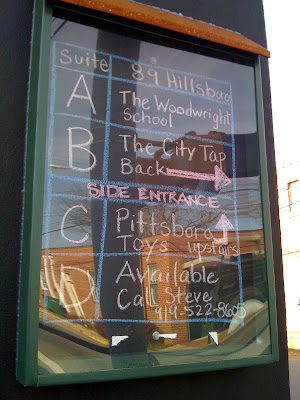 Suite 89 Hillsboro
A The Woodwright
School
B The City Tap
Back
SIDE ENTRANCE
C Pittsboro
Toys upstairs
D Available
Call Steve
919-522-8605